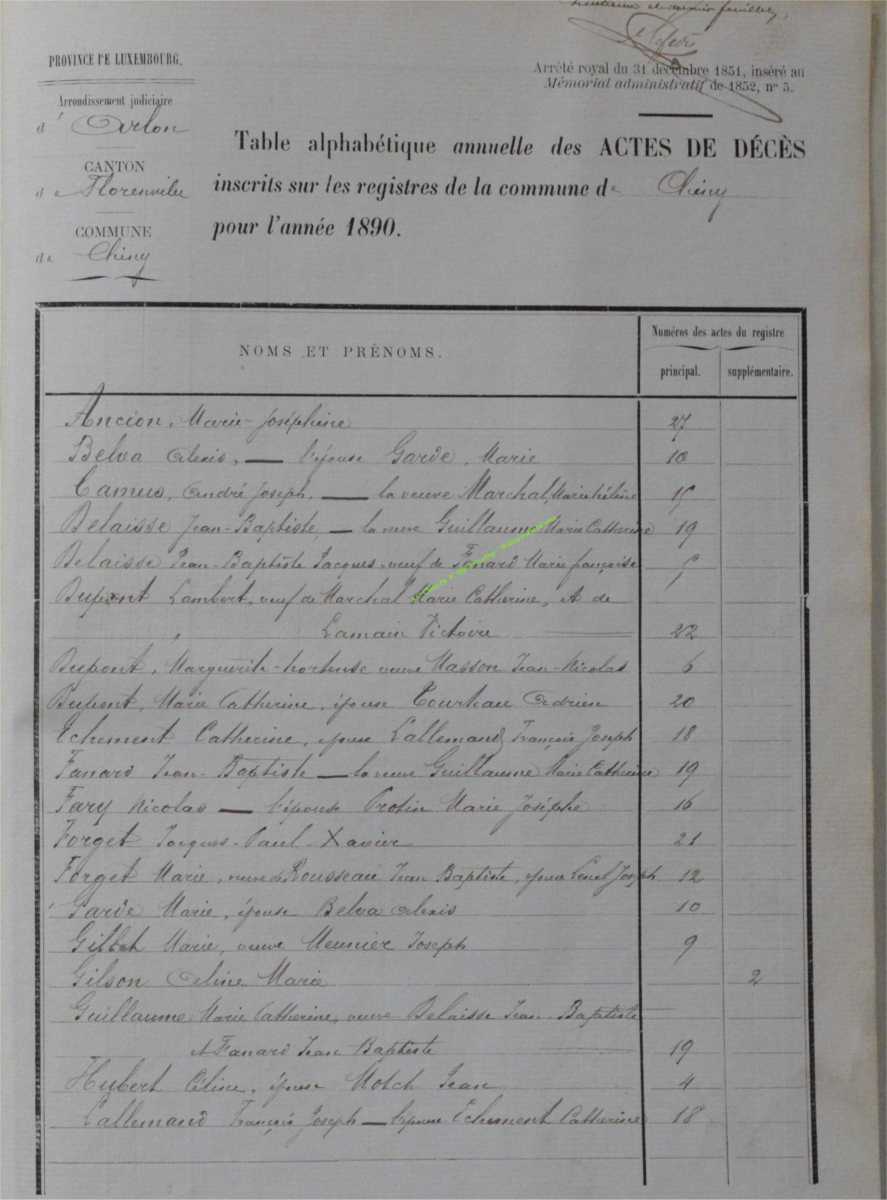 PROVINCE DE LUXEMBOURG.
Arrondissement judiciaire
d' Arlon
CANTON
de Florenville
COMMUNE
de Chiny
Arrêté royal du 31 décembre 1851, inséré au
Mémorial administratif de 1852, n° 5.
Table alphabétique annuelle des ACTES DE DÉCÈS
inscrits sur les registres de la commune de Chiny
pour l'année 1890.
NOMS ET PRÉNOMS.
Numéros des actes du registre
principal. supplémentaire.
Ancion, Marie-Joséphine 27
Belva Alexis, — l'épouse Garde, Marie 10
Camus, André Joseph, — la veuve Marchal, Marie hélène 15
Belaisse Jean-Baptiste, — la veuve Guillaume Marie Catherine 19
Belaisse Jean-Baptiste Jacques veuf de Fanard Marie françoise 5
Dupont Lambert, veuf de Marchal Marie Catherine, et de
Lamain Victoire 22
Dupont, Marguerite-hortense veuve Masson Jean-Nicolas 6
Dupont, Marie Catherine, épouse Tourteau Adrien 20
Echement Catherine, épouse Lallemand François Joseph 18
Fanard Jean-Baptiste — la veuve Guillaume Marie Catherine 19
Fary Nicolas — l'épouse Protin Marie Josèphe 16
Forget Jacques-Paul-Xavier 21
Forget Marie, veuve de Rousseau Jean Baptiste, épouse Joseph 12
Garde Marie, épouse Belva Alexis 10
Gillet Marie, veuve Meunier Joseph 9
Gilson Céline Marie 2
Guillaume Marie Catherine, veuve Belaisse Jean-Baptiste
et Fanard Jean Baptiste 19
Hubert Céline, épouse Motch Jean 4
Lallemand François Joseph — l'épouse Echement Catherine 18